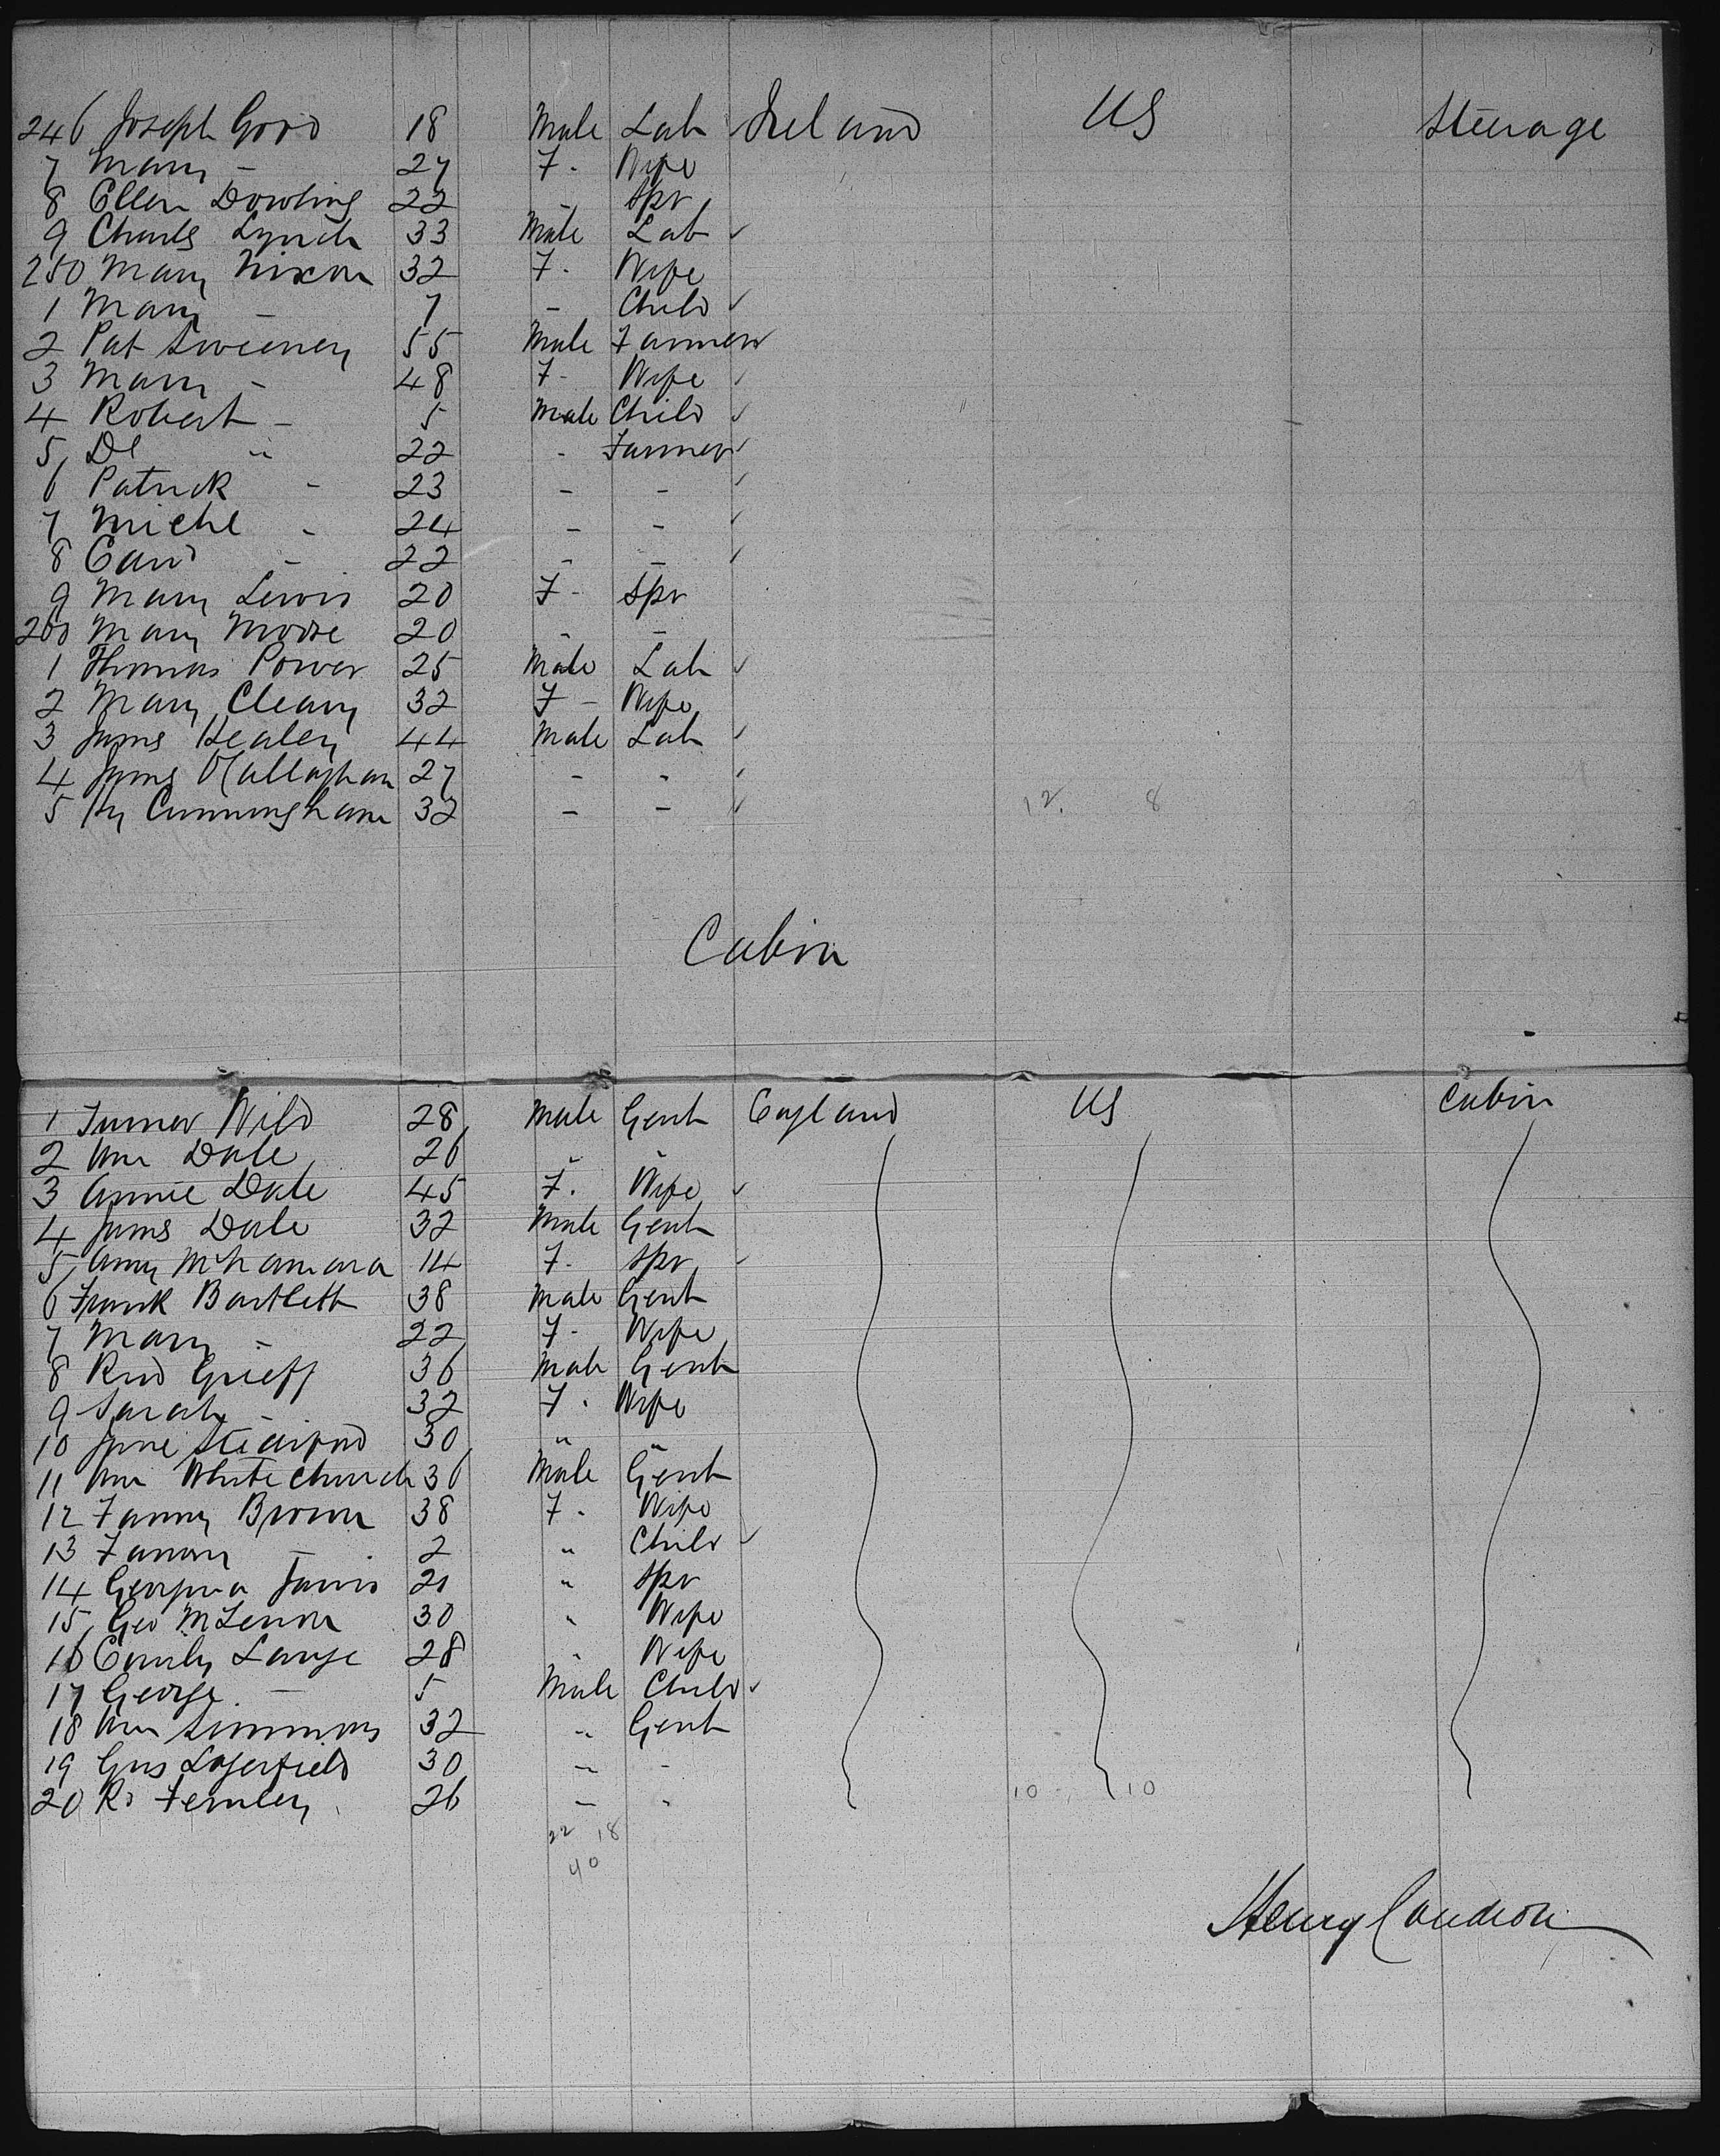 246 Joseph Good 18 Male Lab Ireland US Steerage
7 Mary - 27 F. Wife
8 Ellen Dowling 22 - Spr
9 Charls Lynch 33 Male Lab ✓
250 Mary Nixon 32 F. Wife
1 Mary - 7 - Child ✓
2 Pat Sweeney 55 Male Farmer
3 Mary - 48 F- Wife ✓
4 Robert - 5 Male Child ✓
5 Dl " 22 - Farmer ✓
6 Patrick - 23 - - ✓
7 Michl - 24 - - ✓
8 - 22 - - ✓
9 Mary Lewis 20 F- Spr
260 Mary Moore 20 - -
1 Thomas Power 25 Male Lab ✓
2 Mary Cleary 32 F- Wife
3 Jams Healey 44 Male Lab ✓
4 Jams O'Callaghan 27 - - ✓
5 Hy Cunningham 32 - - ✓ 12. 8
Cabin
1 Turner Wild 28 Male Gent England US Cabin
2 Wm Dale 26 " "
3 Annie Dale 45 F. Wife ✓
4 Jams Dale 32 Male Gent
5 Amy McNamara 14 F. Spr ✓
6 Frank Bartlett 38 Male Gent
7 Mary - 22 F- Wife
8 Grieff 36 Male Gent
9 Sarah - 32 F. Wife
10 Jane 30 " "
11 Wm Whitechurch 36 Male Gent
12 Fanny Brown 38 F. Wife
13 Fanny - 2 " Child ✓
14 Georgina 21 " Spr
15 Geo 30 " Wife
16 Emily Lange 28 " Wife
17 George - 5 Male Child ✓
18 Wm Simmons 32 " Gent
19 Gus Lagerfield 30 " -
20 Rd Fernley 26 - - 10 10
22 18
40
Henry Condron